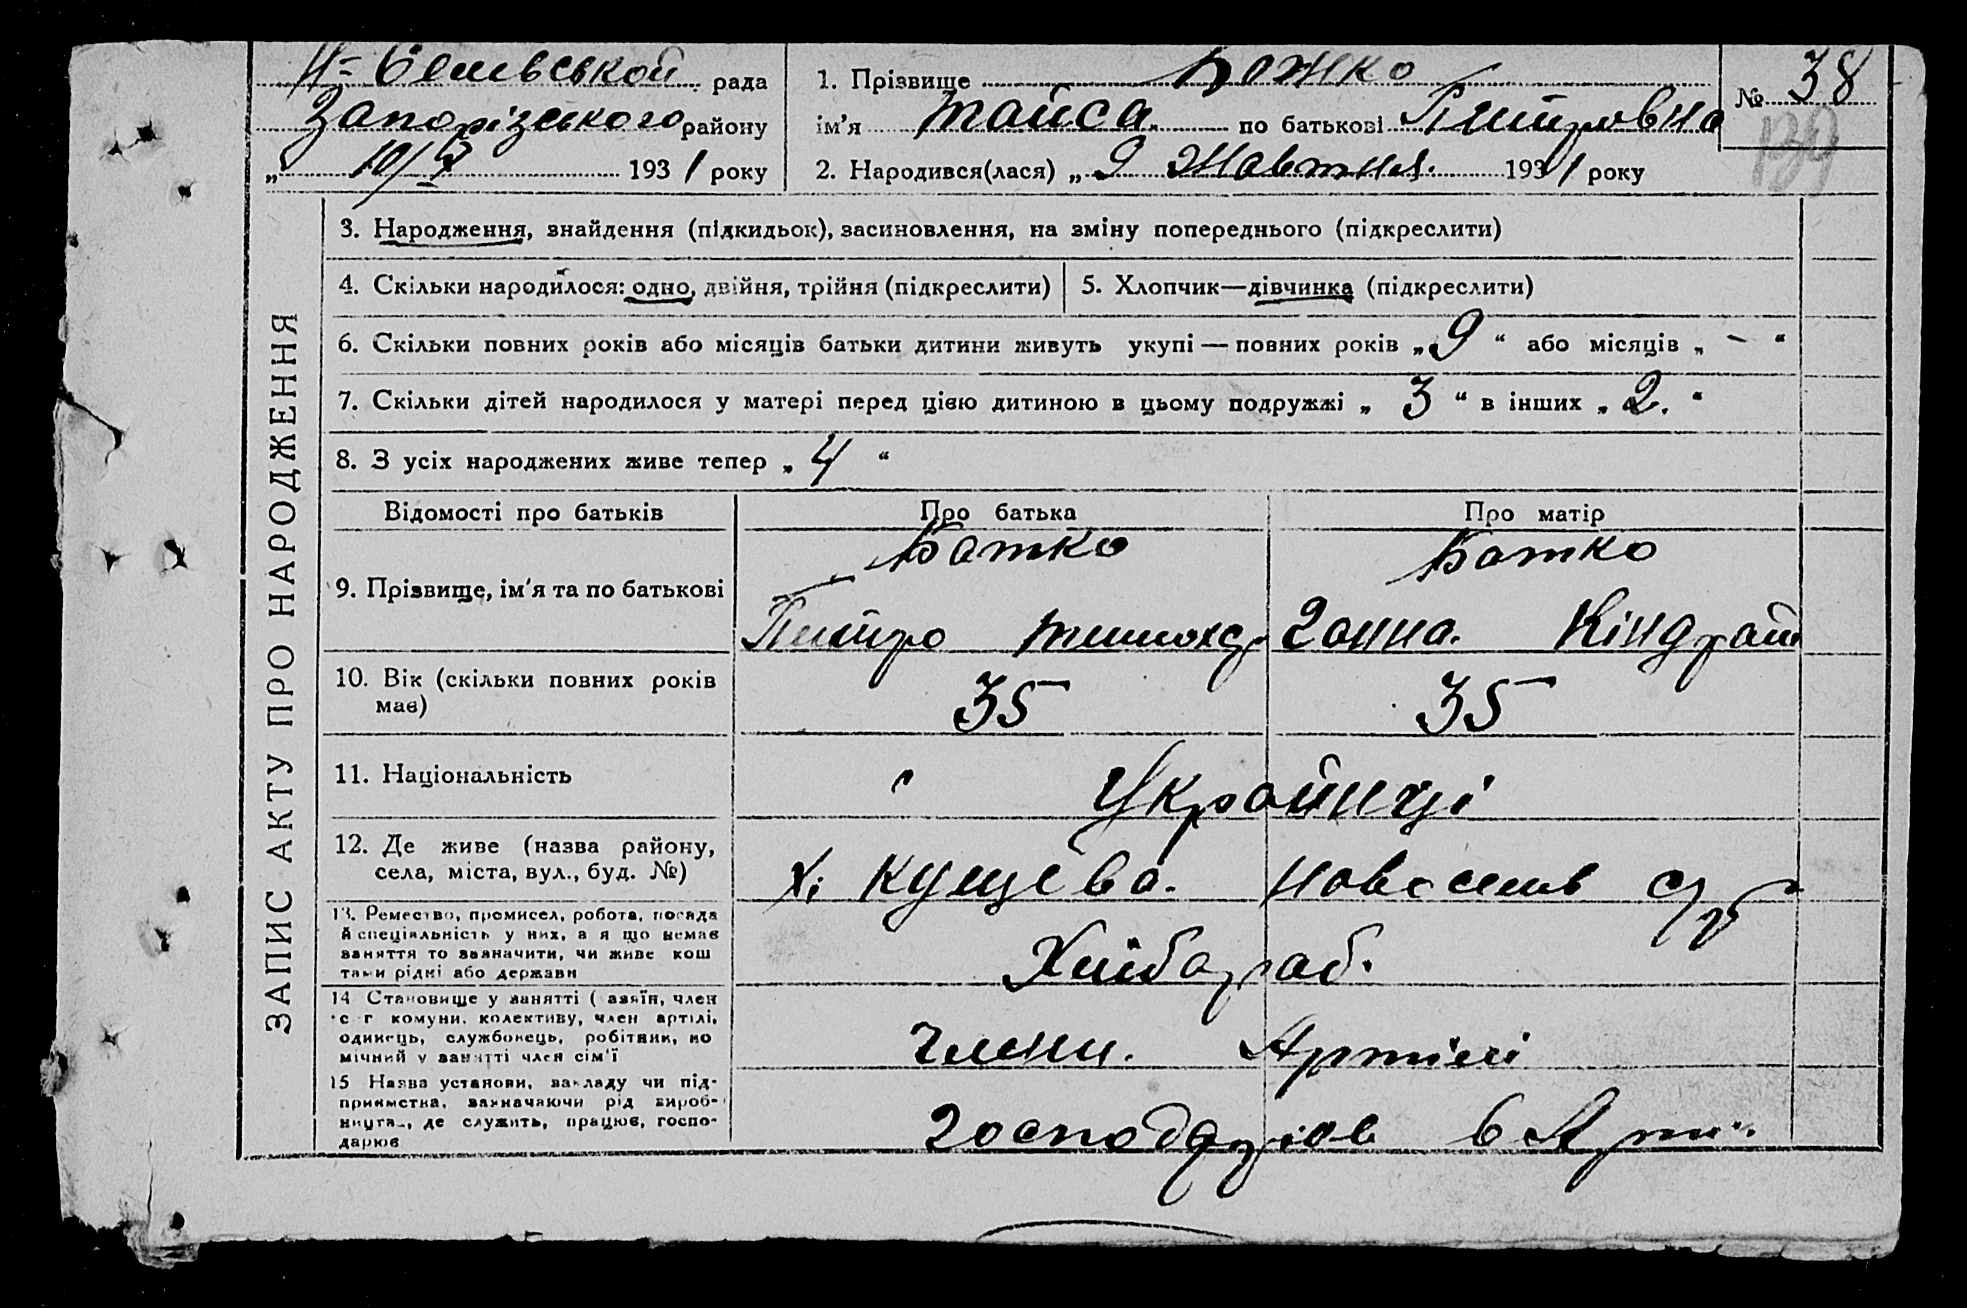 рада
Запорізського району
193 1 року
1. Прізвище Божко
№ 38
ім'я Тайса. по батькові Питровна
139
2. Народився(лася) „ 9 Жовтня. 1931 року
ЗАПИС АКТУ ПРО НАРОДЖЕННЯ
3. Народження, знайдення (підкидьок), засиновлення, на зміну попереднього (підкреслити)
4. Скільки народилося: одно, двійня, трійня (підкреслити)
5. Хлопчик—дівчинка (підкреслити)
6. Скільки повних років або місяців батьки дитини живуть укупі — повних років „ 9 “ або місяців „ - “
7. Скільки дітей народилося у матері перед цією дитиною в цьому подружжі „ 3 “ в інших „ 2. “
8. З усіх народжених живе тепер „ 4 “
Відомості про батьків Про батька Про матір
9. Прізвище, ім'я та по батькові
Божко Божко
Питро Ганна. Кіндрат
10. Вік (скільки повних років
має)
35 35
11. Національність
Українці
12. Де живе (назва району,
села, міста, вул., буд. №)
х. Кущева. Новоселив
13. Ремество, промисел, робота, посада
й спеціяльність у них, а я що немає
заняття то зазначити, чи живе кош
тами рідні або держави
Хлібораб.
14 Становище у занятті ( азяїн, член
с г комуни, колективу, член артілі,
одинець, службовець, робітник, по
мічний у занятті член сім'ї
Члени. Артілі
15 Назва установи, закладу чи під-
приємства, зазначаючи рід вироб-
ництв, де служить, працює, госпо-
дарює
Господарюв в Арті